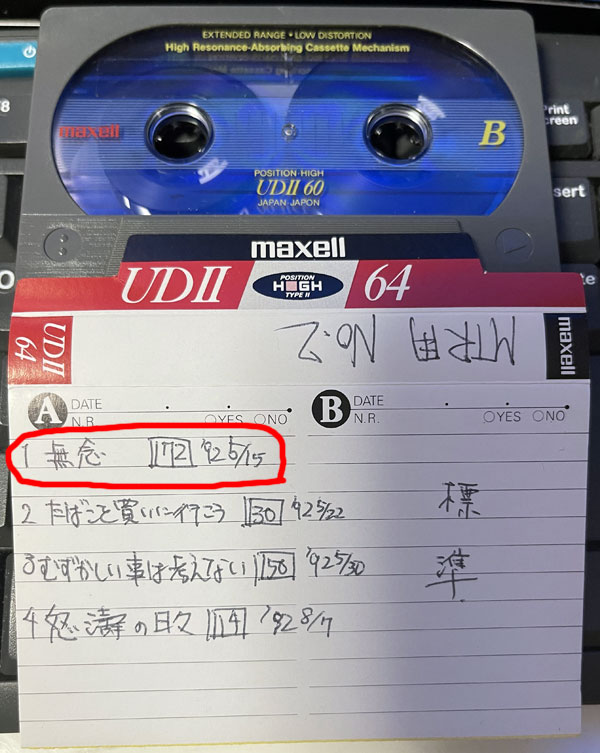 EXTENDED RANGE・LOW DISTORTION
High Resonance-Absorbing Cassette Mechanism
maxell
B
POSITION・HIGH
UDII 60
JAPAN JAPON
maxell
UDII POSITION HIGH TYPE II 64
UDII 64
MTR用 No.2
maxell
A DATE
N.R. YES NO
B DATE
N.R. YES NO
1 無念 172 '92 5/15
2 たばこを買いに行こう 130 '92 5/22
3 むずかしい事は考えてない 150 '92 5/30
4 怒濤の日々 114 '92 8/7
標準